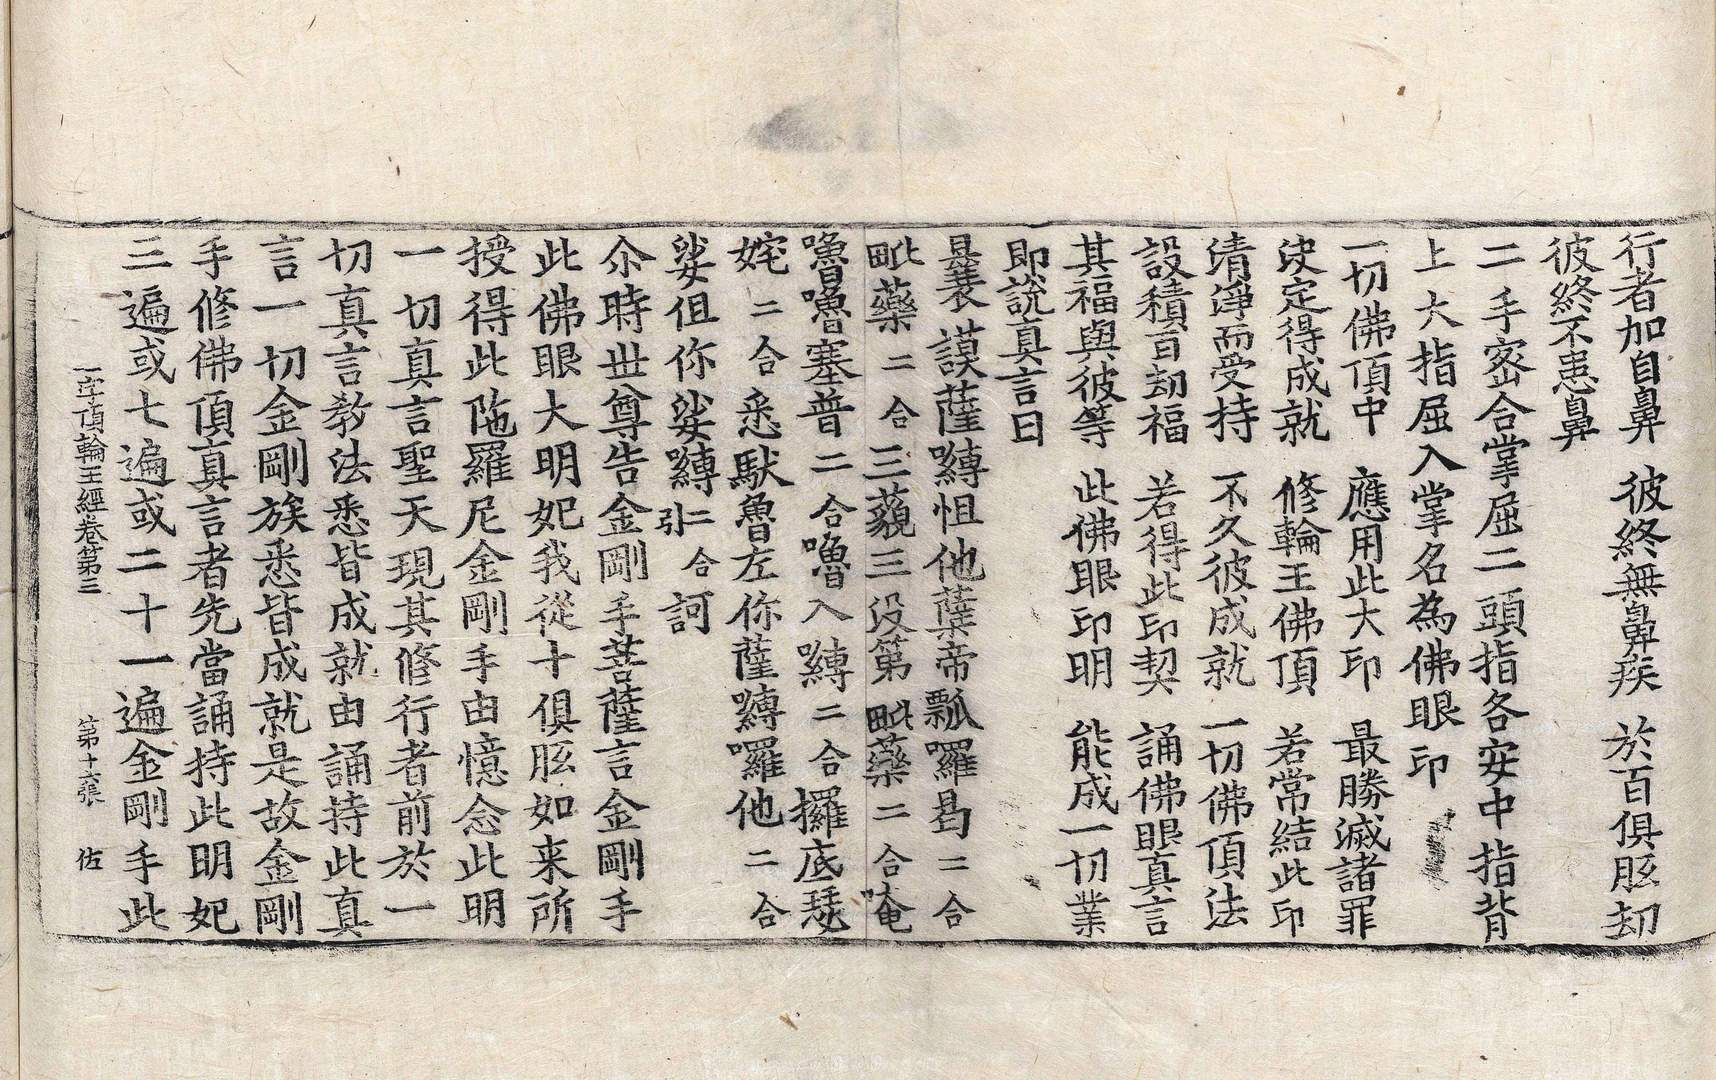 行者加自鼻　彼終無鼻疾　於百俱胝劫
彼終不患鼻
二手宻合掌屈二頭指各安中指背
上大指屈入掌名為佛眼印
一切佛頂中　應用此大印　最勝滅諸罪
決定得成就　修輪王佛頂　若常結此印
清淨而受持　不久彼成就　一切佛頂法
設積百劫福　若得此印契　誦佛眼真言
其福與彼等　此佛眼印明　能成一切業
即說真言曰
曩謨薩嚩怛他蘖帝瓢囉曷二合
毗藥二合三藐三没第毗藥二合唵
嚕嚕塞普二合嚕入嚩二合攞底瑟
姹二合悉馱魯左你薩嚩囉他二合
娑伹你娑嚩引二合訶
尒時世尊告金剛手菩薩言金剛手
此佛眼大明妃我從十俱胝如来所
授得此陁羅尼金剛手由憶念此明
一切真言聖天現其修行者前於一
切真言教法悉皆成就由誦持此真
言一切金剛族悉皆成就是故金剛
手修佛頂真言者先當誦持此明妃
三遍或七遍或二十一遍金剛手此
一字頂輪王經卷第三　第十六張　佐